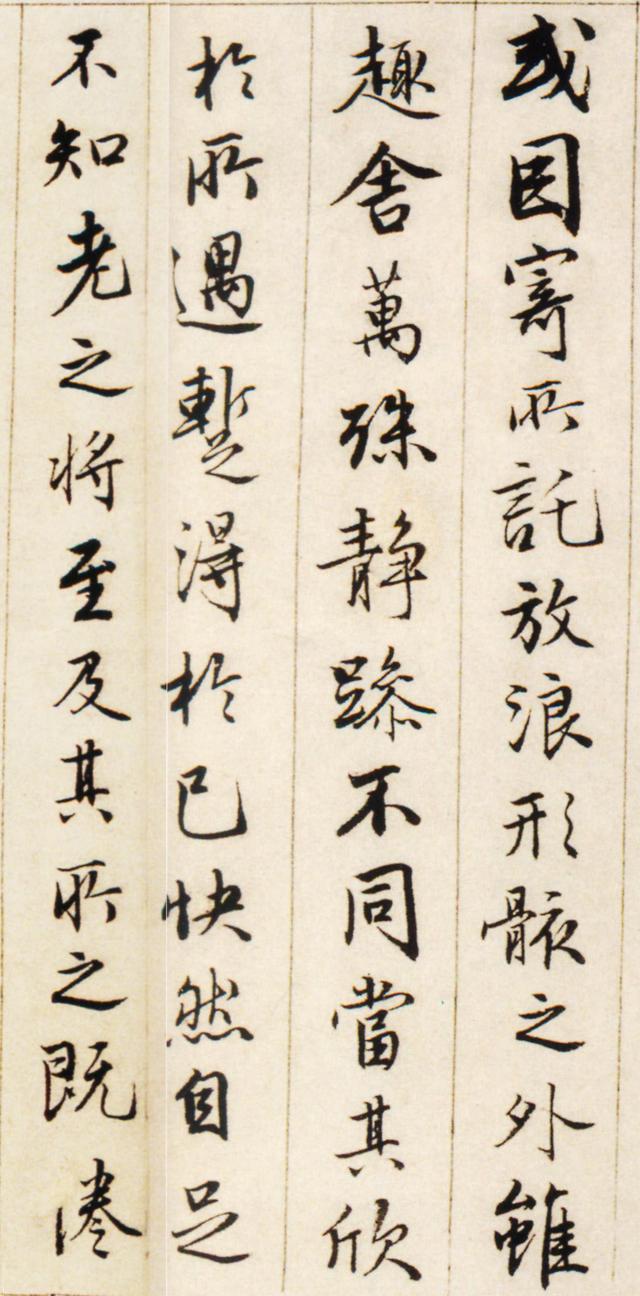 或因寄所託放浪形骸之外雖
趣舍萬殊静躁不同當其欣
於所遇蹔得於己快然自足
不知老之將至及其所之既惓